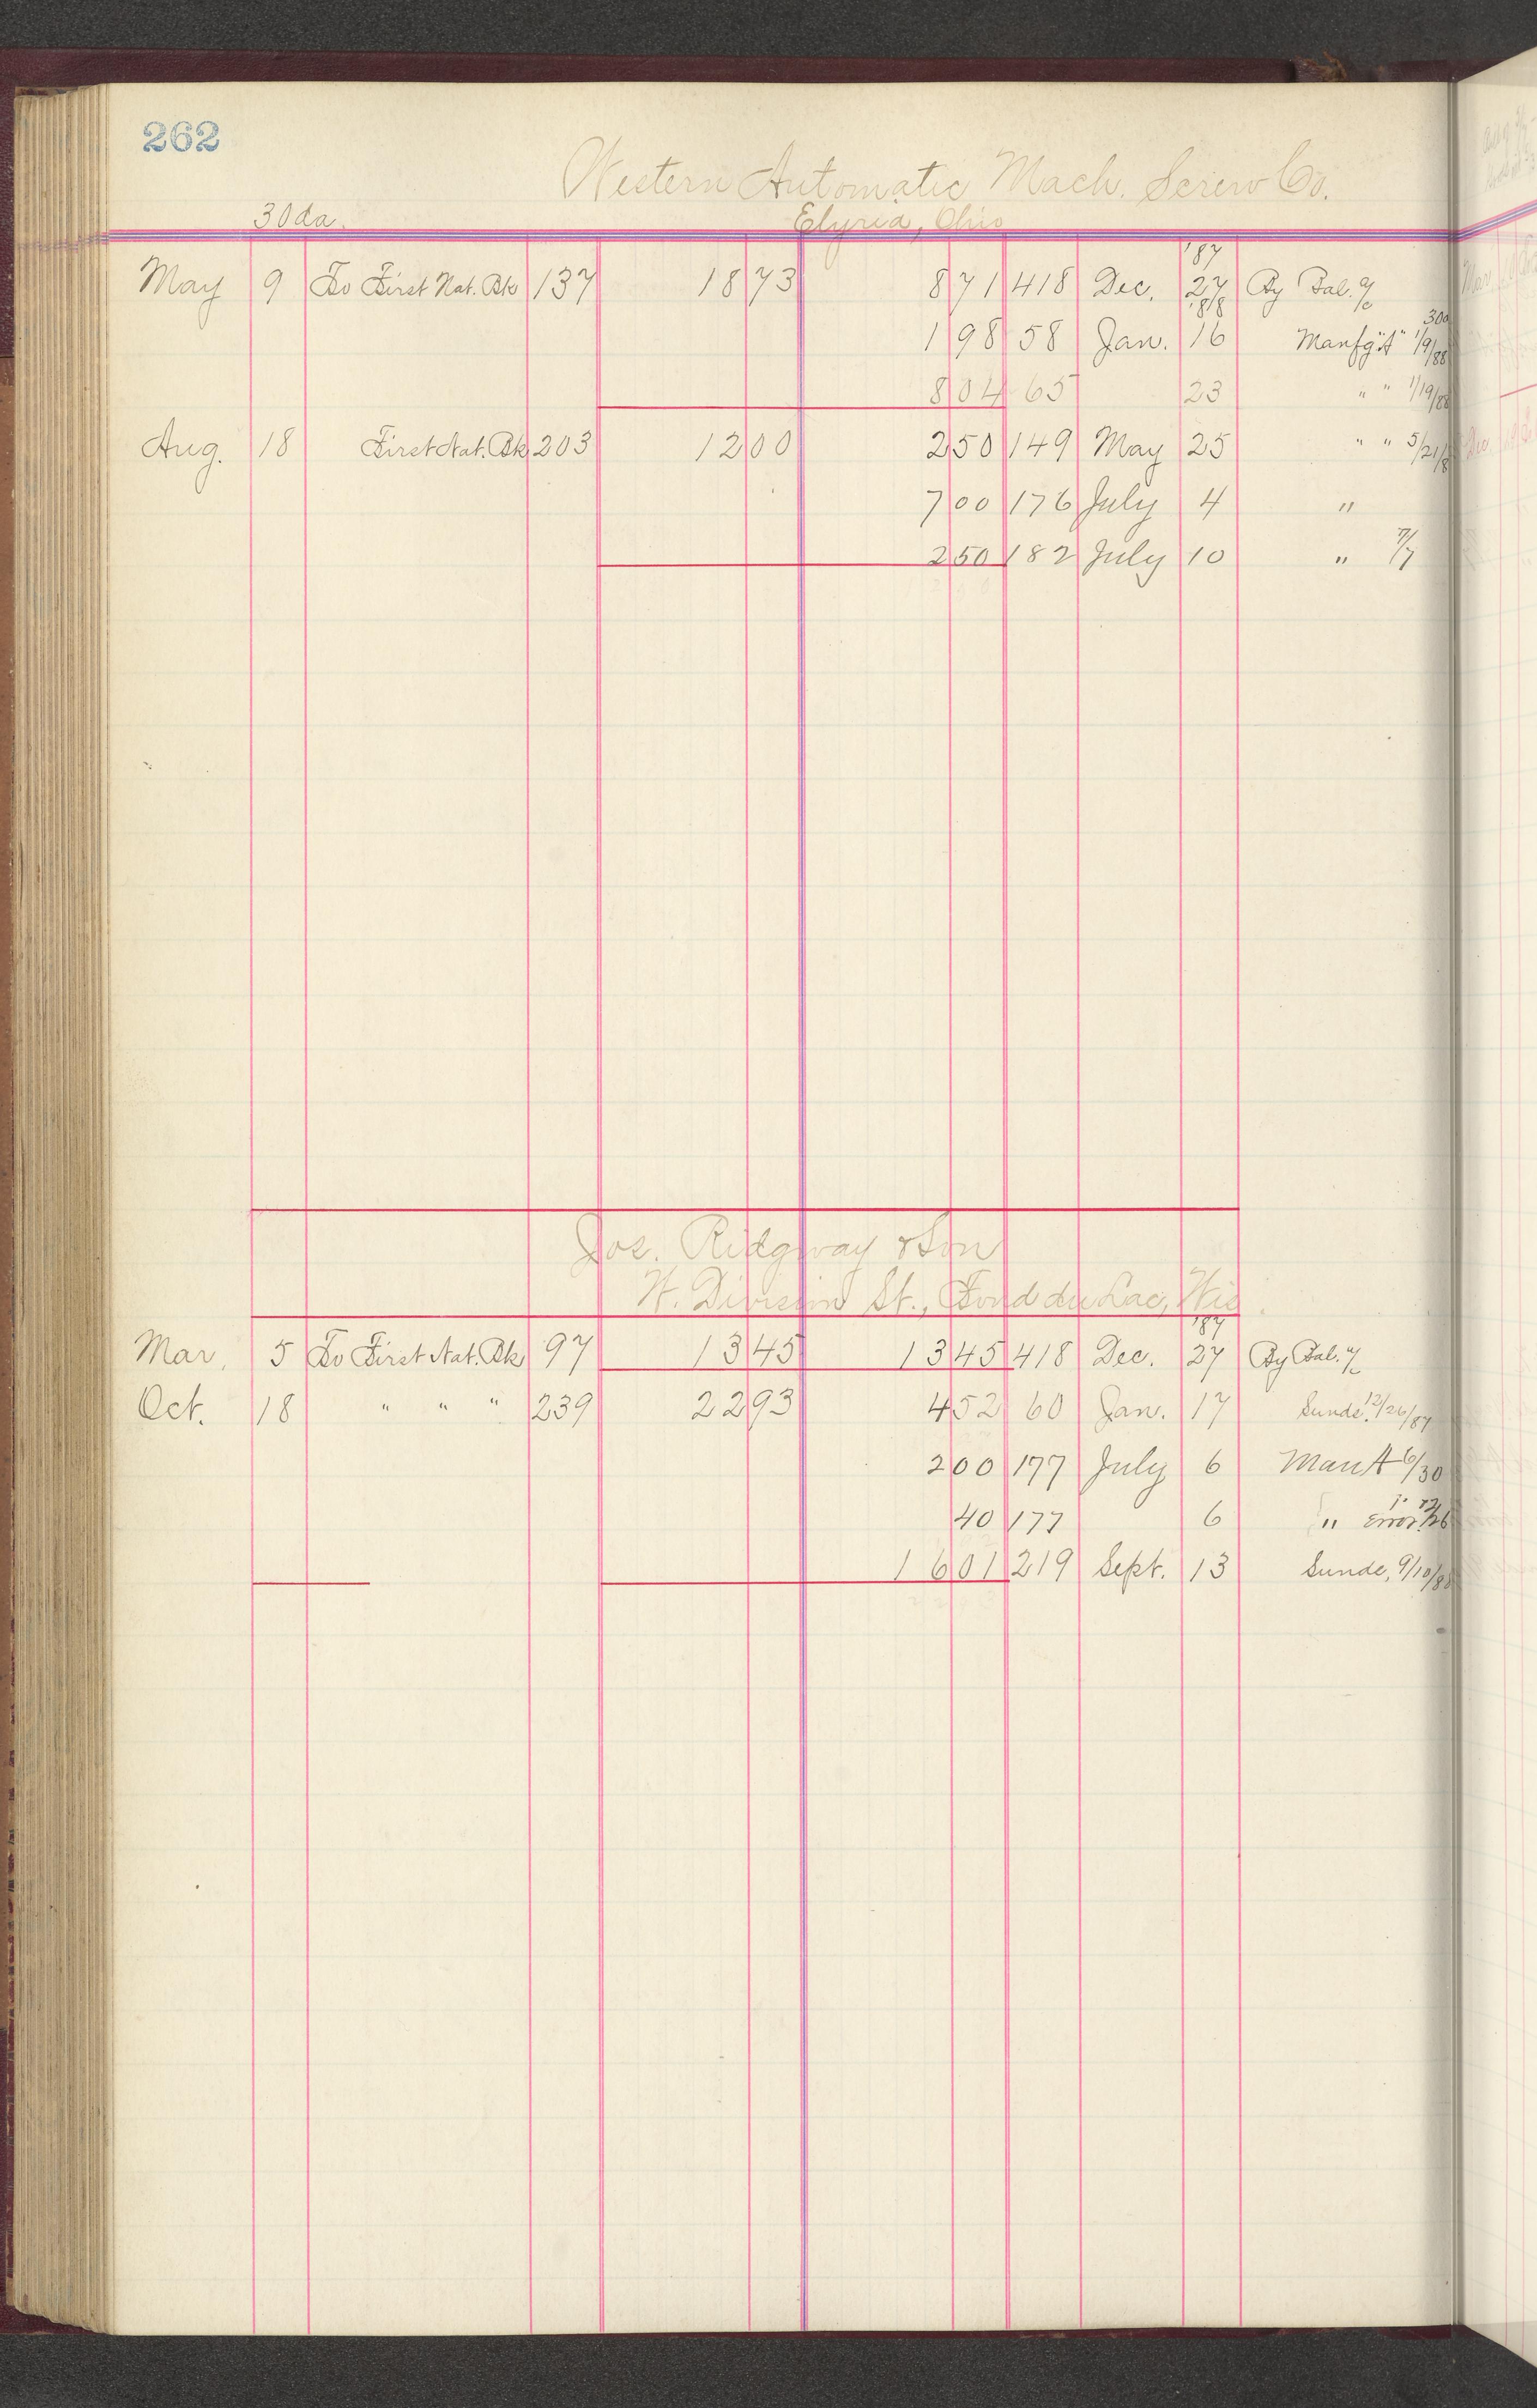 262
Western Automatic Mach. Screw Co.
30da. Elyria, Ohio
'87
May 9 To First Nat. Bk 137 18 73 8 71 418 Dec. 27 By Bal. a/c
'88 30d
1 98 58 Jan. 16 Manfg 1/9/88
8 04 65 23 " " 1/19/88
Aug. 18 First Nat. Bk 203 12 00 2 50 149 May 25 " " 5/21/8
7 00 176 July 4 "
2 50 182 July 10 " 7/7
Jos. Ridgway & Son
W. Division St., Fond du Lac, Wis.
'87
Mar. 5 To First Nat. Bk 97 13 45 13 45 418 Dec. 27 By Bal. a/c
Oct. 18 " " " 239 22 93 4 52 60 Jan. 17 Sunds. 12/26/87
2 00 177 July 6 Man 6/30
40 177 6 " Error
16 01 219 Sept. 13 Sunds, 9/10/88